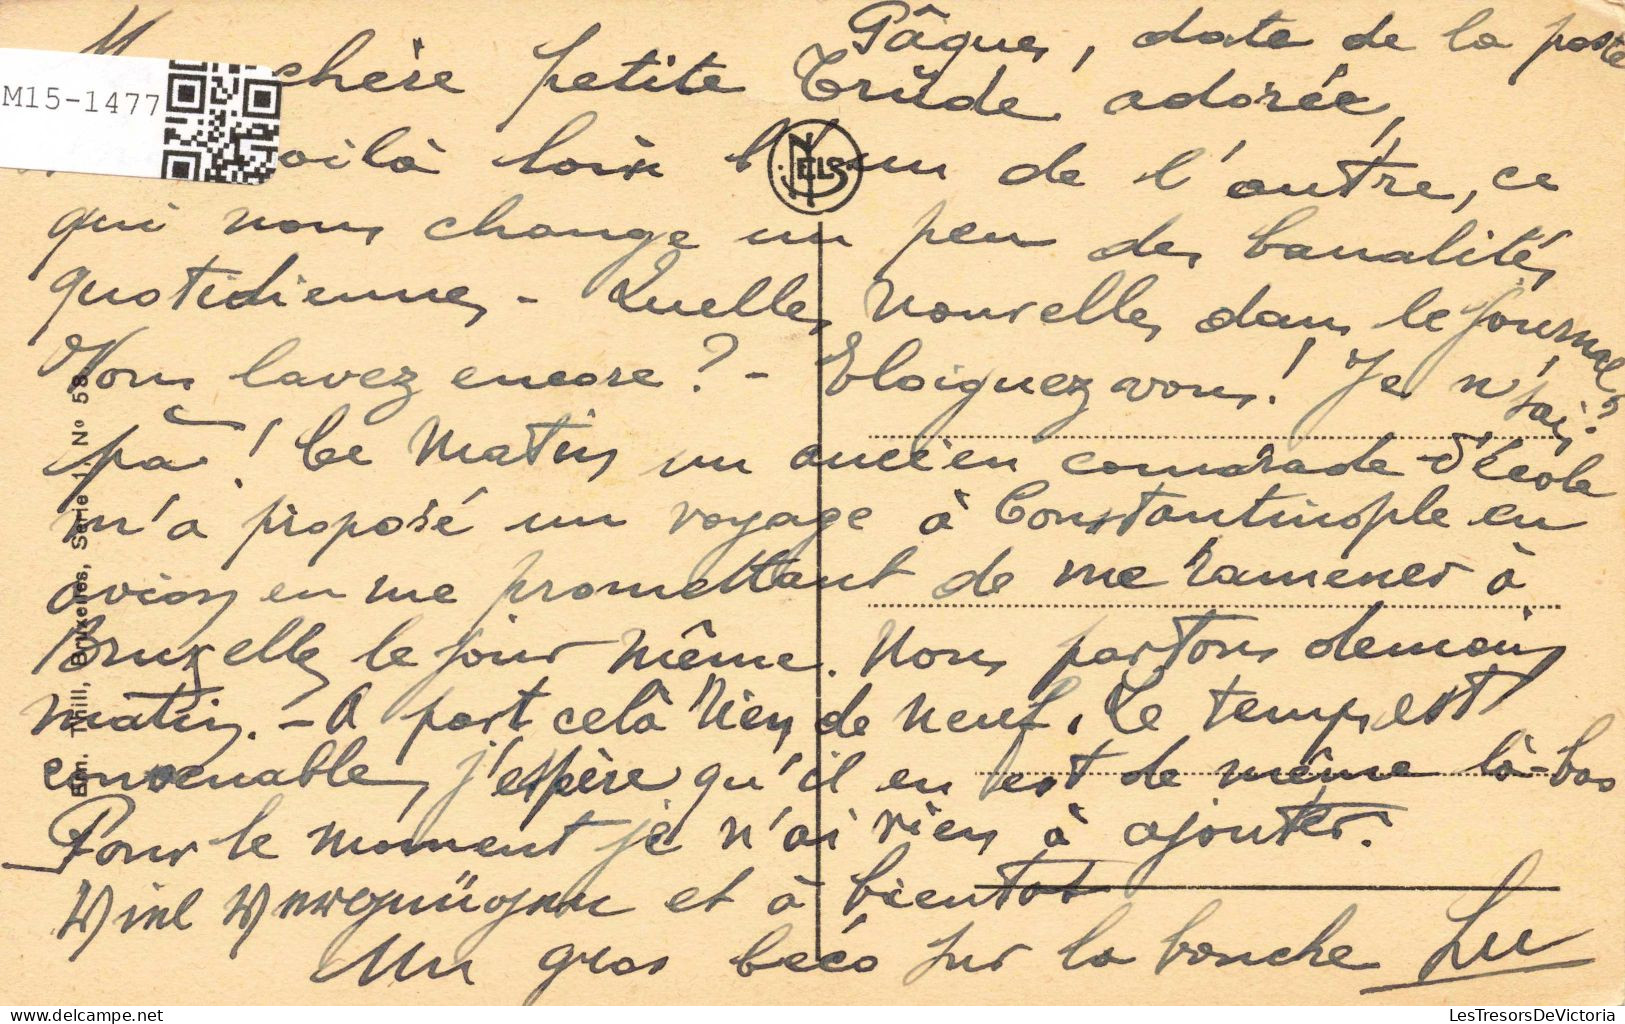 Pâques, date de la poste
M chère petite Trüde adorée,
oilà loin l'un de l'autre, ce
qui nous change un peu des banalités
quotidiennes - Quelles nouvelles dans le journal?
Vous lavez encore? - Eloignez vous! Je n'sais
pâ! Ce matin un ancien camarade d'école
m'a proposé un voyage à Constantinople en
avion en me promettant de me ramener à
Bruxelles le jour même. Nous partons demain
matin. - A part celà rien de neuf. Le temps est
convenable, j'espère qu'il en est de même là-bas
Pour le moment je n'ai rien à ajouter.
Viel Vergnügen et à bientot
Un gros béco sur la bouche Lu
M15-1477
NELS
Ern. Thill, Bruxelles, Série 1, No 58
© delcampe.net
LesTresorsDeVictoria